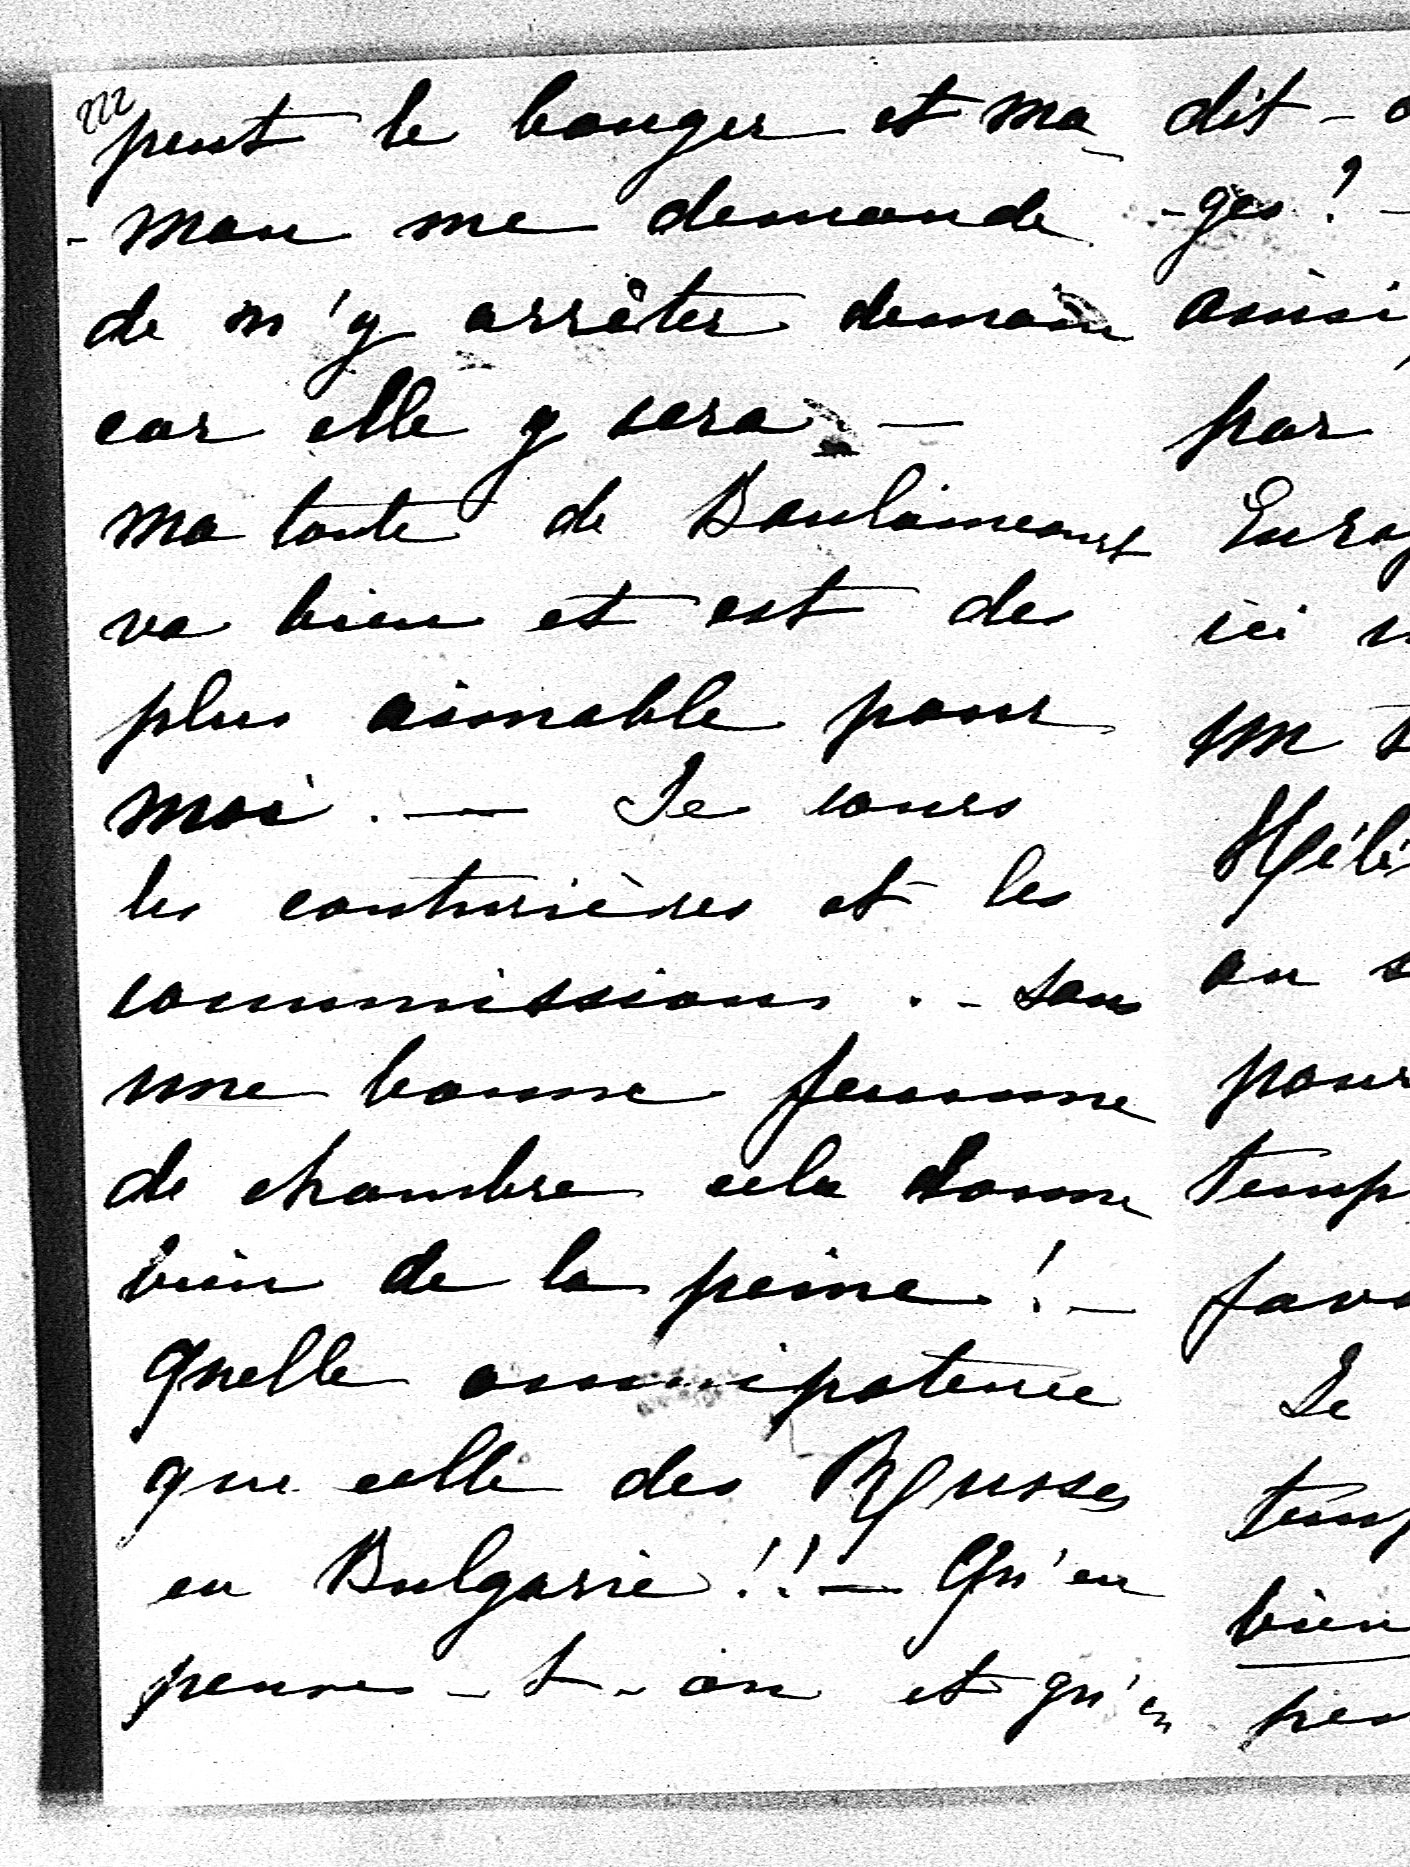 222
peut le bouger et ma
-man me demande
de m'y arrêter demain
car elle y sera -
ma tante de Boulaincourt
va bien et est des
plus aimable pour
moi. - Je cours
les couturières et les
commissions. - sans
une bonne femme
de chambre cela donne
bien de la peine ! -
quelle omnipotence
que celle des Russes
en Bulgarie !! - Qu'en
penses-t-on et qu'en
dit -
-ges ! -
ainsi
par
Europ
ici
un
Hélè
on s
pour
temp
favo
Je
temp
bien